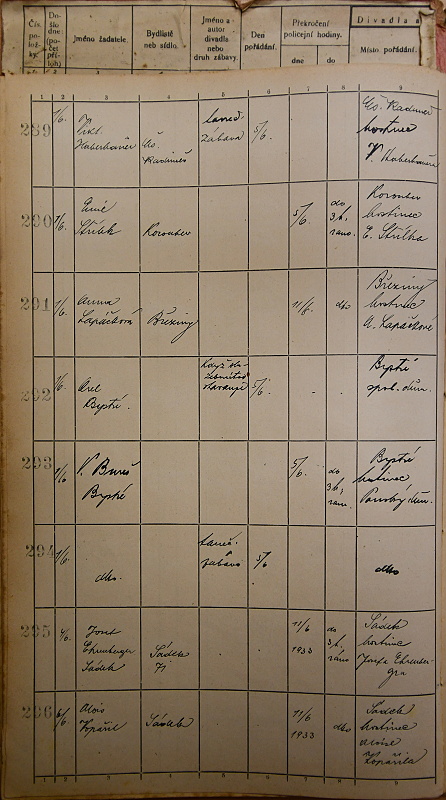 Čís. položky.
Došlo dne: (počet příloh)
Jméno žadatele.
Bydliště neb sídlo.
Jméno a autor divadla nebo druh zábavy.
Den pořádání.
Překročení policejní hodiny.
dne
do
Divadla a
Místo pořádání.
1 2 3 4 5 6 7 8 9
289
Haberhauer
Čs. Radiměř
taneč. zábava
5/6.
Čs. Radiměř
hostinec
V. Haberhauera
290
7/6.
Emil
Střílek
Korouhev
5/6.
do 3 h. ráno.
Korouhev
hostinec
E. Střílka
291
1/6.
Anna
Lapáčková
Březiny
11/6.
dto
Březiny
hostinec
A. Lapáčkové
292
1/6.
Orel
Bystré.
5/6.
Bystré
spol. dům.
293
1/6.
V. Bureš
Bystré
5/6.
do 3 h. ráno.
Bystré
hostinec
294
1/6.
dto.
taneč.
zábava
5/6
dto
295
Josef
Ehrenberger
Sádek
Sádek
71
11/6
1933
do 3 h. ráno
Sádek
hostinec
Josefa Ehrenber-
gra
296
6/6
Alois
Kopáčil
Sádek
11/6
1933
dto
Sádek
hostinec
Aloise
1 2 3 4 5 6 7 8 9